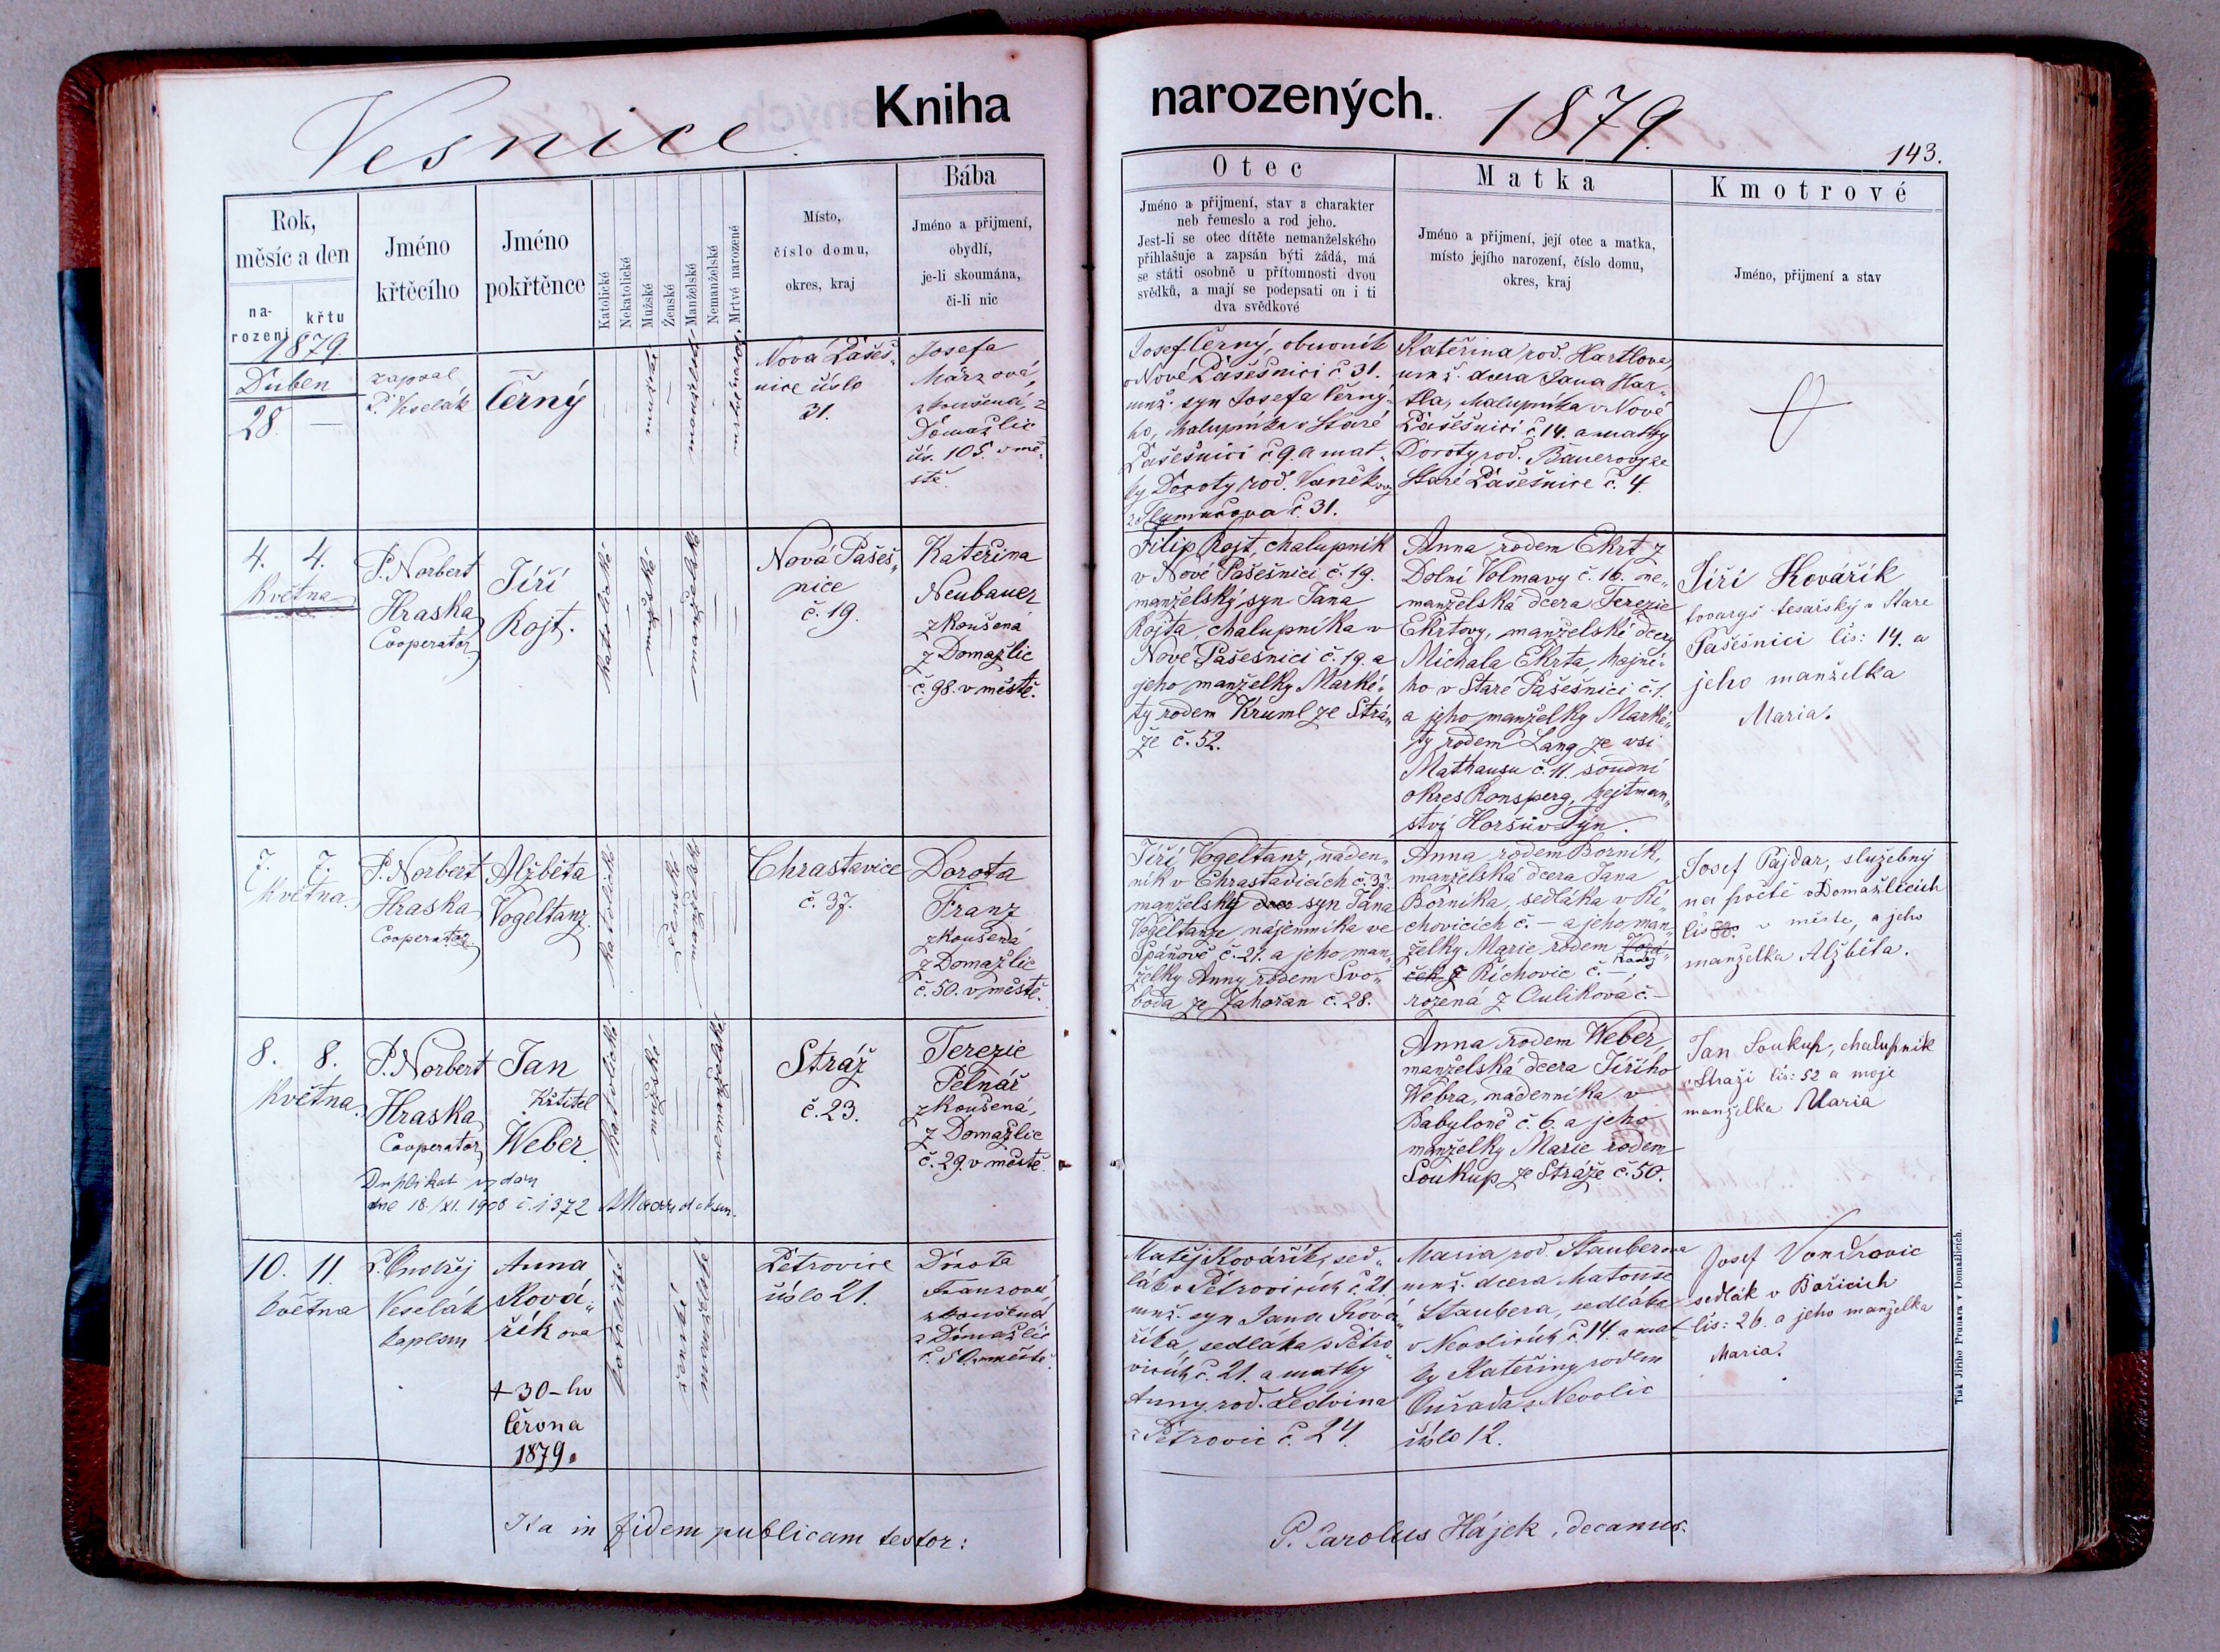 Vesnice.
Kniha
narozených.
1879.
143.
Rok,
měsíc a den
na-
rozeni
křtu
Jméno
křtěcího
Jméno
pokřtěnce
Katolické
Nekatolické
Mužské
Ženské
Manželské
Nemanželské
Mrtvé narozené
Místo,
číslo domu,
okres, kraj
Bába
Jméno a přijmení,
obydlí,
je-li skoumána,
či-li nic
Otec
Jméno a přijmení, stav a charakter
neb řemeslo a rod jeho.
Jest-li se otec dítěte nemanželského
přihlašuje a zapsán býti žádá, má
se státi osobně u přítomnosti dvou
svědků, a mají se podepsati on i ti
dva svědkové
Matka
Jméno a přijmení, její otec a matka,
místo jejího narození, číslo domu,
okres, kraj
Kmotrové
Jméno, přijmení a stav
1879.
Duben
28. —
zapsal
P. Veselák
Černý
Nová Pašeš„
nice číslo
31.
Josefa
Märzová,
zkoušená, z
Domažlic
čís. 105. v mě„
stě.
Josef Černý, obuvník
v Nové Pašešnici č 31.
mnž. syn Josefa Černý„
ho, chalupníka v Staré
Pašešnici č 9. a mat„
ky Doroty rod. Vaněkovy
z Tlumačova č. 31.
Kateřina rod. Hartlova,
mnž. dcera Jana Har„
tla, chalupníka v Nové
Pašešnici č 14. a matky
Doroty rod. Bauerovy ze
Staré Pašešnice č. 4.
4. 4.
Května
P. Norbert
Hraska
Cooperator
Jiří
Rojt.
katolické
Nová Pašeš„
nice
č. 19.
Kateřina
Neubauer
zkoušená
z Domažlic
č. 98. v městě.
Filip Rojt, chalupník
v Nové Pašešnici č. 19.
manželský syn Jana
Rojta, chalupníka v
Nové Pašešnici č. 19. a
jeho manželky Marké„
ty rodem Kruml ze Strá„
že č. 52.
Anna rodem Ekrt z
Dolní Volmavy č. 16. ne„
manželská dcera Terezie
Ekrtovy, manželské dcery
Michala Ekrta, hajní„
ho v Staré Pašešnici č. 1.
a jeho manželky Marké„
ty rodem Lang ze vsi
Mathausu č. 11. soudní
okres Ronsperg, hejtman„
ství Horšův Týn.
Jiří Kovářík
tovaryš tesařský v Stare
Pašešnici čis: 14. a
jeho manželka
Maria.
7. 7.
Května.
P. Norbert
Hraska
Cooperator
Alžběta
Vogeltanz.
katolické
Chrastavice
č. 37.
Dorota
Franz
zkoušená
z Domažlic
č. 50. v městě.
Jiří Vogeltanz, náden„
ník v Chrastavicích č. 37.
manželský syn Jana
Vogeltanze nájemníka ve
Španově č. 21. a jeho man„
želky Anny rodem Svo„
boda ze Zahořan č. 28.
Anna rodem Borník,
manželská dcera Jana
Borníka, sedláka v Ři„
chovicích č. — a jeho man„
želky Marie rodem
z Řichovic č. —,
rozená z Oulikova č. —
Josef Pajdar, služebný
na poště v Domažlicích
čis 88. v městě, a jeho
manželka Alžběta.
8. 8.
Května.
P. Norbert
Hraska
Cooperator
Jan
Křtitel
Weber
katolické
Stráž
č. 23.
Terezie
Pelnář
zkoušená,
z Domažlic
č. 29. v městě.
Duplikat vydán
dne 18./XI. 1908 č. 1372
Anna rodem Weber,
manželská dcera Jiřího
Webra, nádenníka v
Babyloně č. 6. a jeho
manželky Marie rodem
Soukup ze Stráže č. 50.
Jan Soukup, chalupník
v Straži čis: 52 a moje
manželka Maria
10. 11.
května
P. Ondřej
Veselák
kaplan
Anna
Ková„
řík ova
+ 30-ho
Června
1879.
Petrovice
číslo 21.
Dorota
Franzová,
zkoušená
z Domažlic
č. 50. v městě.
Matěj Kovářík, sed„
lák v Petrovicích č. 21.
mnž. syn Jana Ková„
říka, sedláka v Petro„
vicích č. 21. a matky
Anny rod. Ledvina
z Petrovic č. 24.
Maria rod. Stauberova
mnž. dcera Matouše
Staubera, sedláka
v Nevolicích č. 14. a mat„
ky Kateřiny rodem
Ouřada z Nevolic
číslo 12.
Josef Vondrovic
sedlák v Bořicich
čis: 26. a jeho manželka
Maria.
Ita in fidem publicam testor:
P. Carolus Hájek, decanus.
Tisk Jiřího Prunara v Domažlicích.